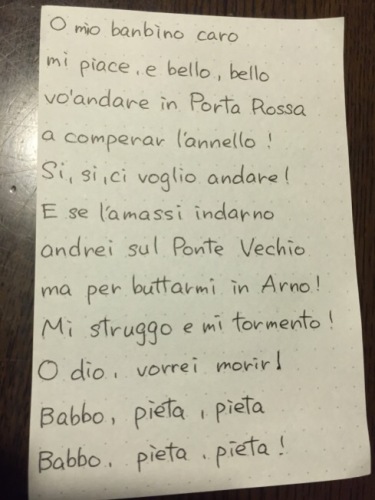 O mio banbino caro
mi piace, e bello, bello
vo'andare in Porta Rossa
a comperar l'annello !
Si, si, ci voglio andare !
E se l'amassi indarno
andrei sul Ponte Vechio
ma per buttarmi in Arno !
Mi struggo e mi tormento !
O dio, vorrei morir !
Babbo, pieta, pieta
Babbo, pieta, pieta !